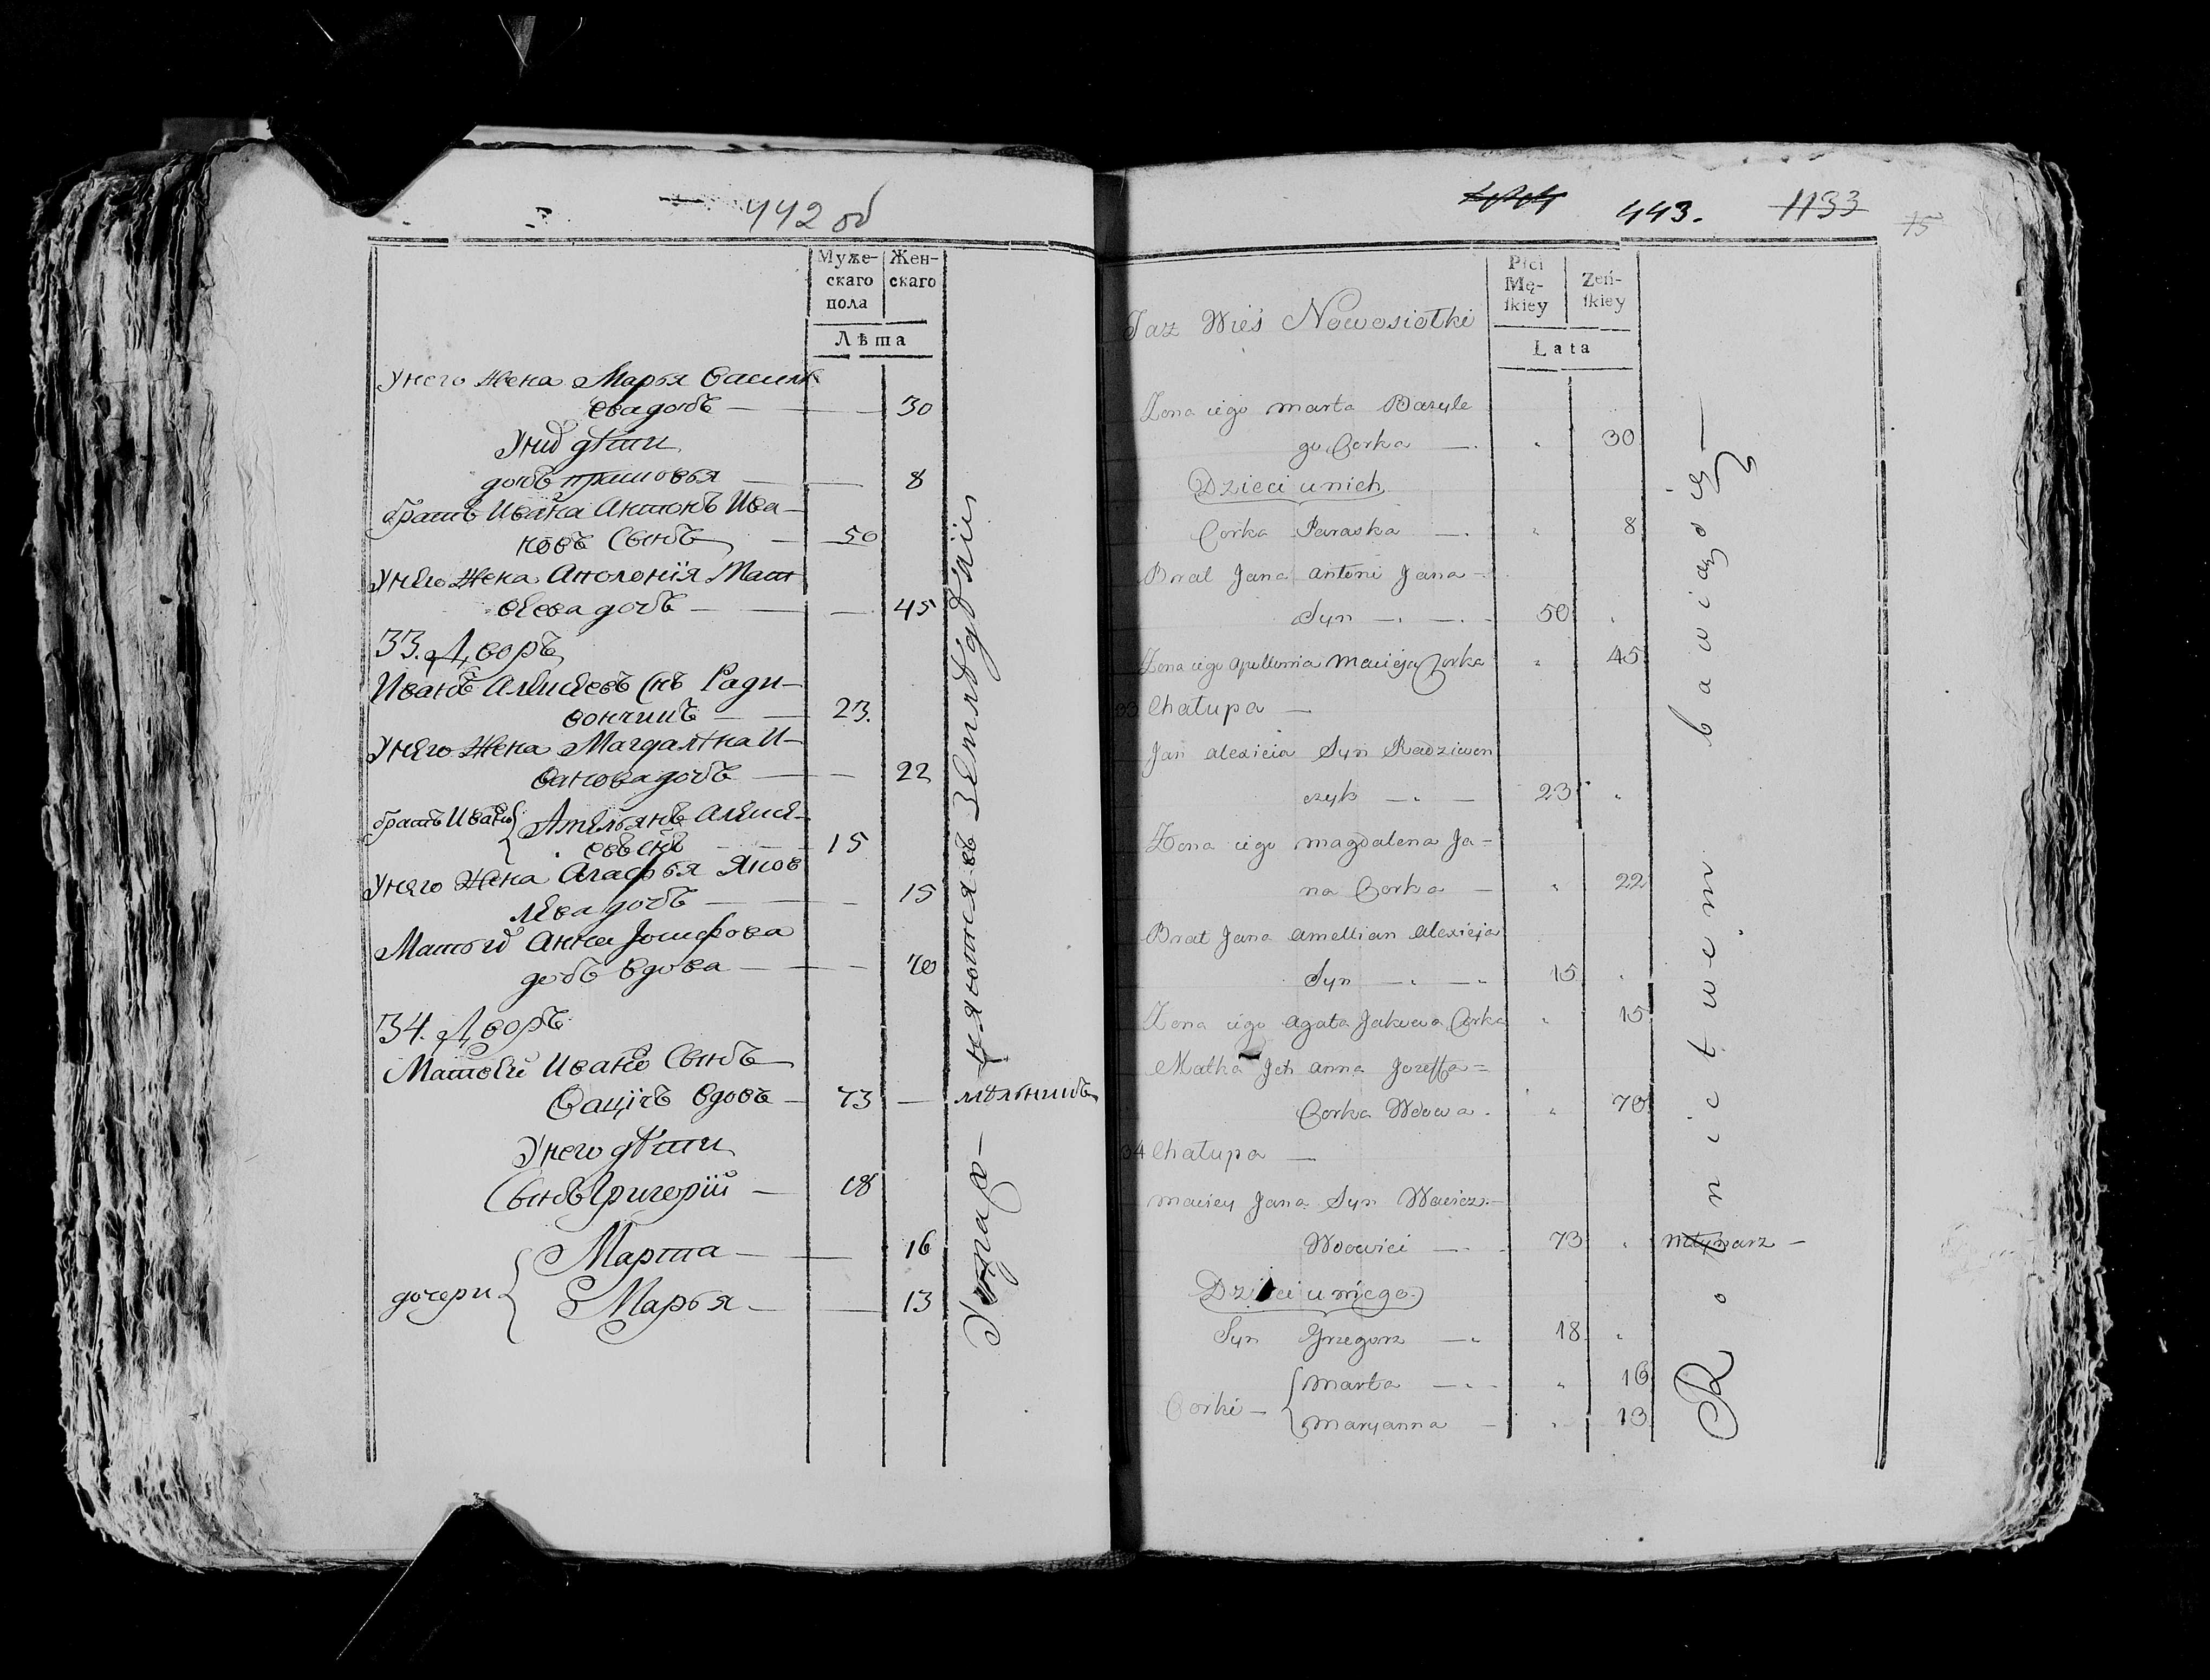 442 об
Муже-
скаго
пола
Жен-
скаго
Лѣта
У него жена Марья Василь
ева дочь — 30
У них дѣти
дочь — 8
братъ Ивана Антонъ Ива-
новъ Сынъ — 50
У него жена Аполонія Мат
вѣева дочь — 45
33. Дворъ
Иванъ Алексѣевъ снъ Ради-
вончикъ — 23.
У него жена Магдалѣна И-
ванова дочь — 22
братъ Ивана { Амельянъ Алексѣ-
евъ снъ 15
У него жена Агафья Яков
лева дочь — 15
Мать их Анна Іосифова
дочь вдова — 70
34. Дворъ
Матвѣй Ивано Сынъ
Вацічъ вдовъ — 73 — мѣльникъ
У него дѣти
Сынъ Григорій — 18
дочери { Марта — 16
Марья — 13
Упраж-
няются въ Землѣдѣліи
443. 1133
15
Płci
Mę-
ſkiey
Zeń-
ſkiey
Lata
Taz Wieś Nowosiołki
Zona iego Marta Bazyle
go Corka — 30
Dzieci u nich
Corka Paraska — 8
Brat Jana Antoni Jana -
Syn — 50
Zona iego Apollonia Macieja Corka 45
33 Chałupa —
Jan Alexieia Syn Radziwon
czyk — 23
Zona iego Magdalena Ja =
na Corka — 22
Brat Jana Amellian Alexieja
Syn — 15
Zona iego Agata Jakuba Corka 15
Matka Jch Anna Jozeffa =
Corka Wdowa . 70
34 Chałupa —
Maciey Jana Syn Wacicz -
Wdowiec — 73 młynarz —
Dzieci u niego
Syn Grzegorz — 18
Corki — { Marta — 16
Maryanna — 13
Rolnictwem bawią się —